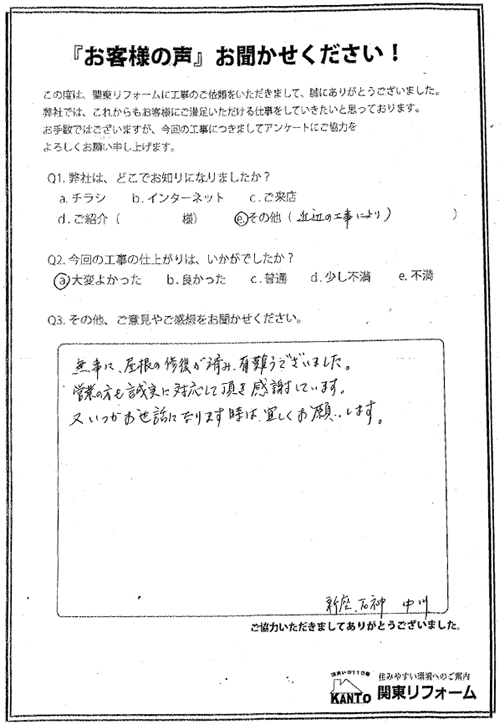 『お客様の声』お聞かせください！
この度は、関東リフォームに工事のご依頼をいただきまして、誠にありがとうございました。
弊社では、これからもお客様にご満足いただける仕事をしていきたいと思っております。
お手数ではございますが、今回の工事につきましてアンケートにご協力を
よろしくお願い申し上げます。
Q1. 弊社は、どこでお知りになりましたか？
a. チラシ　b. インターネット　c. ご来店
d. ご紹介（　　　様）　e. その他（近辺の工事により）
Q2. 今回の工事の仕上がりは、いかがでしたか？
a. 大変よかった　b. 良かった　c. 普通　d. 少し不満　e. 不満
Q3. その他、ご意見やご感想をお聞かせください。
無事に、屋根の修復が済み、有難うございました。
営業の方も誠実に対応して頂き感謝しています。
又いつかお世話になります時は、宜しくお願いします。
新座、石神　中川
ご協力いただきましてありがとうございました。
住まいの110番
KANTO
住みやすい環境へのご案内
関東リフォーム